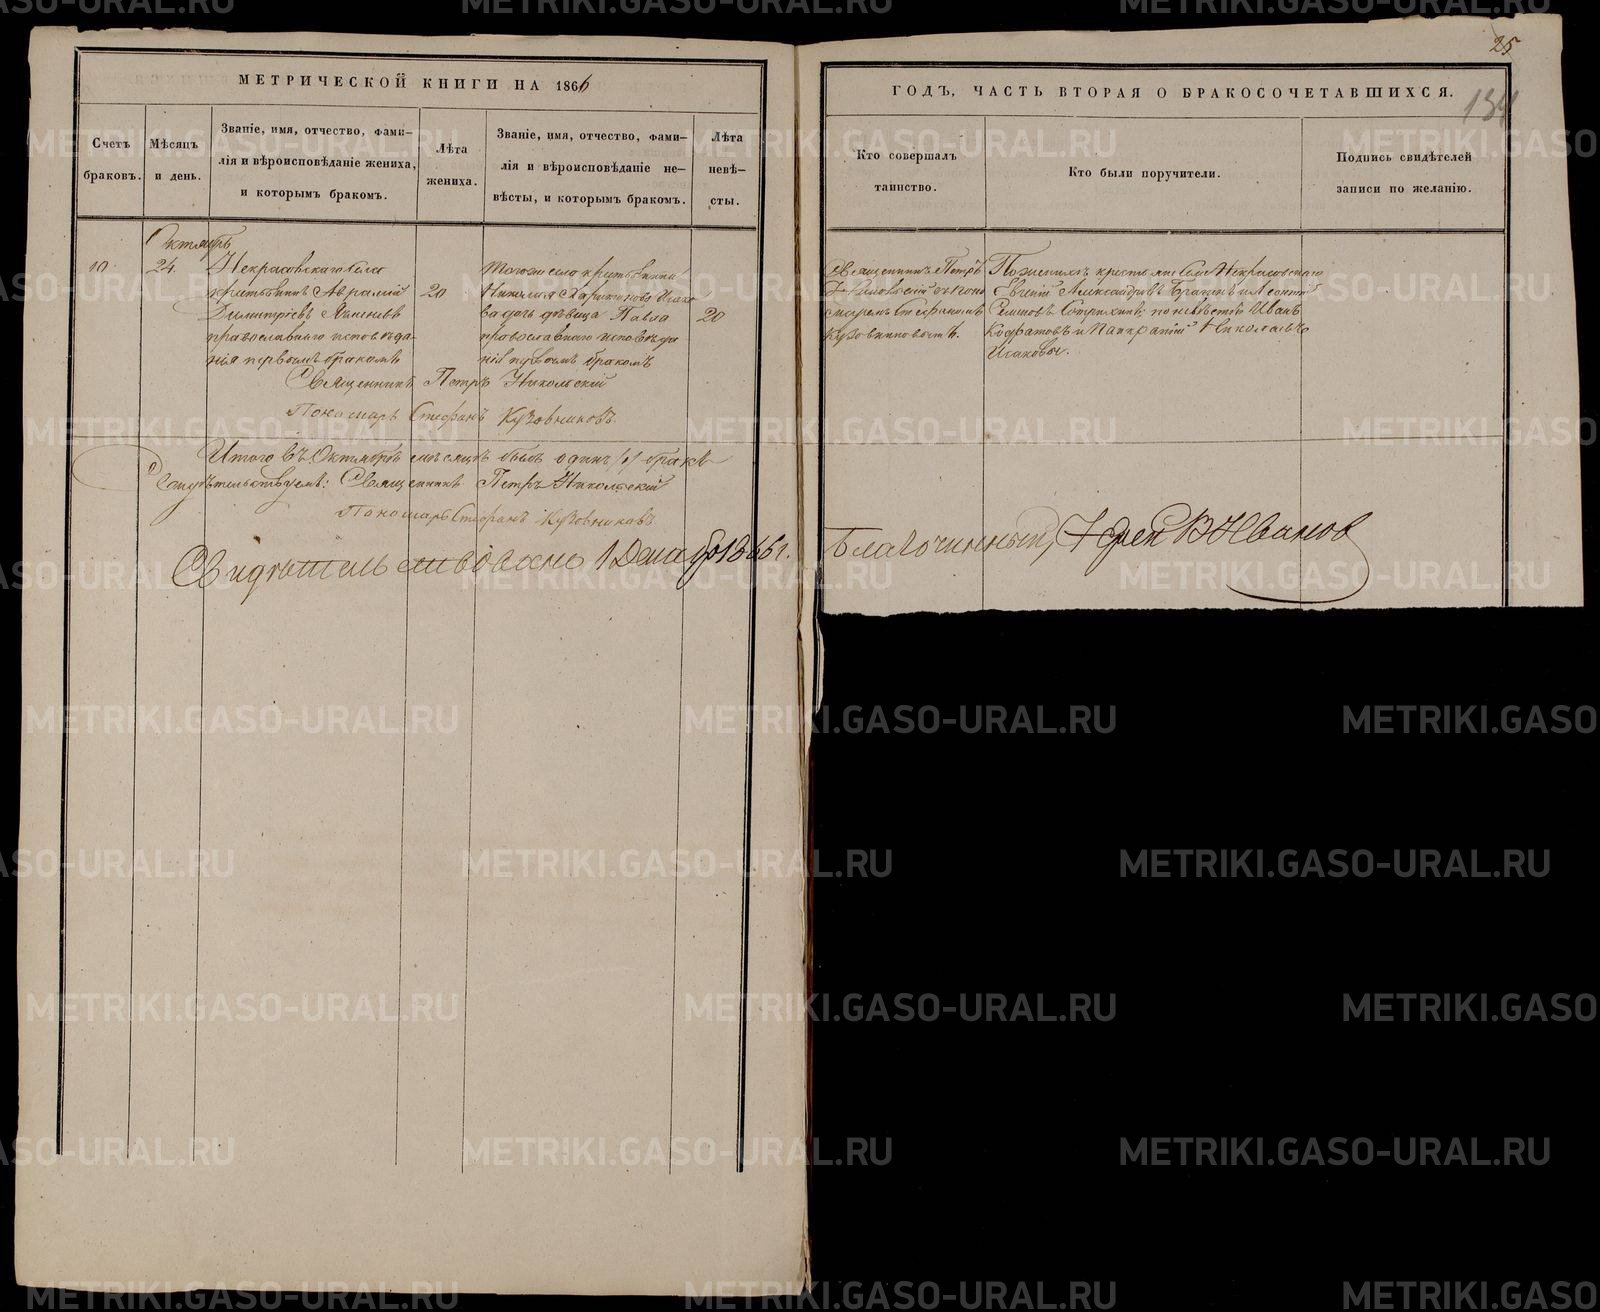 25
134
МЕТРИЧЕСКОЙ КНИГИ НА 1866
ГОДЪ, ЧАСТЬ ВТОРАЯ О БРАКОСОЧЕТАВШИХСЯ.
Счетъ
браковъ.
Мѣсяцъ
и день.
Званіе, имя, отчество, фами-
лія и вѣроисповѣданіе жениха,
и которымъ бракомъ.
Лѣта
жениха.
Званіе, имя, отчество, фами-
лія и вѣроисповѣданіе не-
вѣсты, и которымъ бракомъ.
Лѣта
невѣ-
сты.
Кто совершалъ
таинство.
Кто были поручители.
Подпись свидѣтелей
записи по желанію.
Октябрь
10
24.
Некрасовскаго села
крестьянинъ Аврамій
Димитріевъ
православнаго исповѣда-
нія первымъ бракомъ
20
Тогоже села крестьянина
Исако-
ва дочь дѣвица Павла
православнаго исповѣда-
нія первымъ бракомъ
20
Священникъ Петръ
Никольскій съ поно-
маремъ Стефаномъ
Кузовниковымъ.
По женихѣ крестьяне села Некрасовскаго
Евгеній Александровъ и Леонтій
Семеновъ по невѣстѣ Иванъ
Кодратовъ и Панкратій Николаевъ
Исаковы.
Священникъ Петръ Никольскій
Пономарь Стефанъ Кузовниковъ.
Итого въ Октябрѣ мѣсяцѣ былъ одинъ /1/ бракъ
Свидѣтельствуемъ: Священникъ Петръ Никольскій
Пономарь Стефанъ Кузовниковъ
Свидѣтельствовано 1 Декабря 1866 г. Благочинный, Іерей В Ивановъ
METRIKI.GASO-URAL.RU